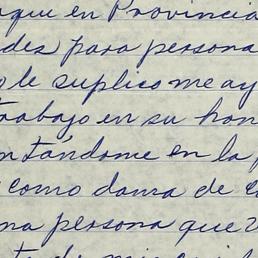 que en Provincia
des para persona
le suplico me ay
trabajo en su hon
ntándome en la
como dama de c
na persona que v